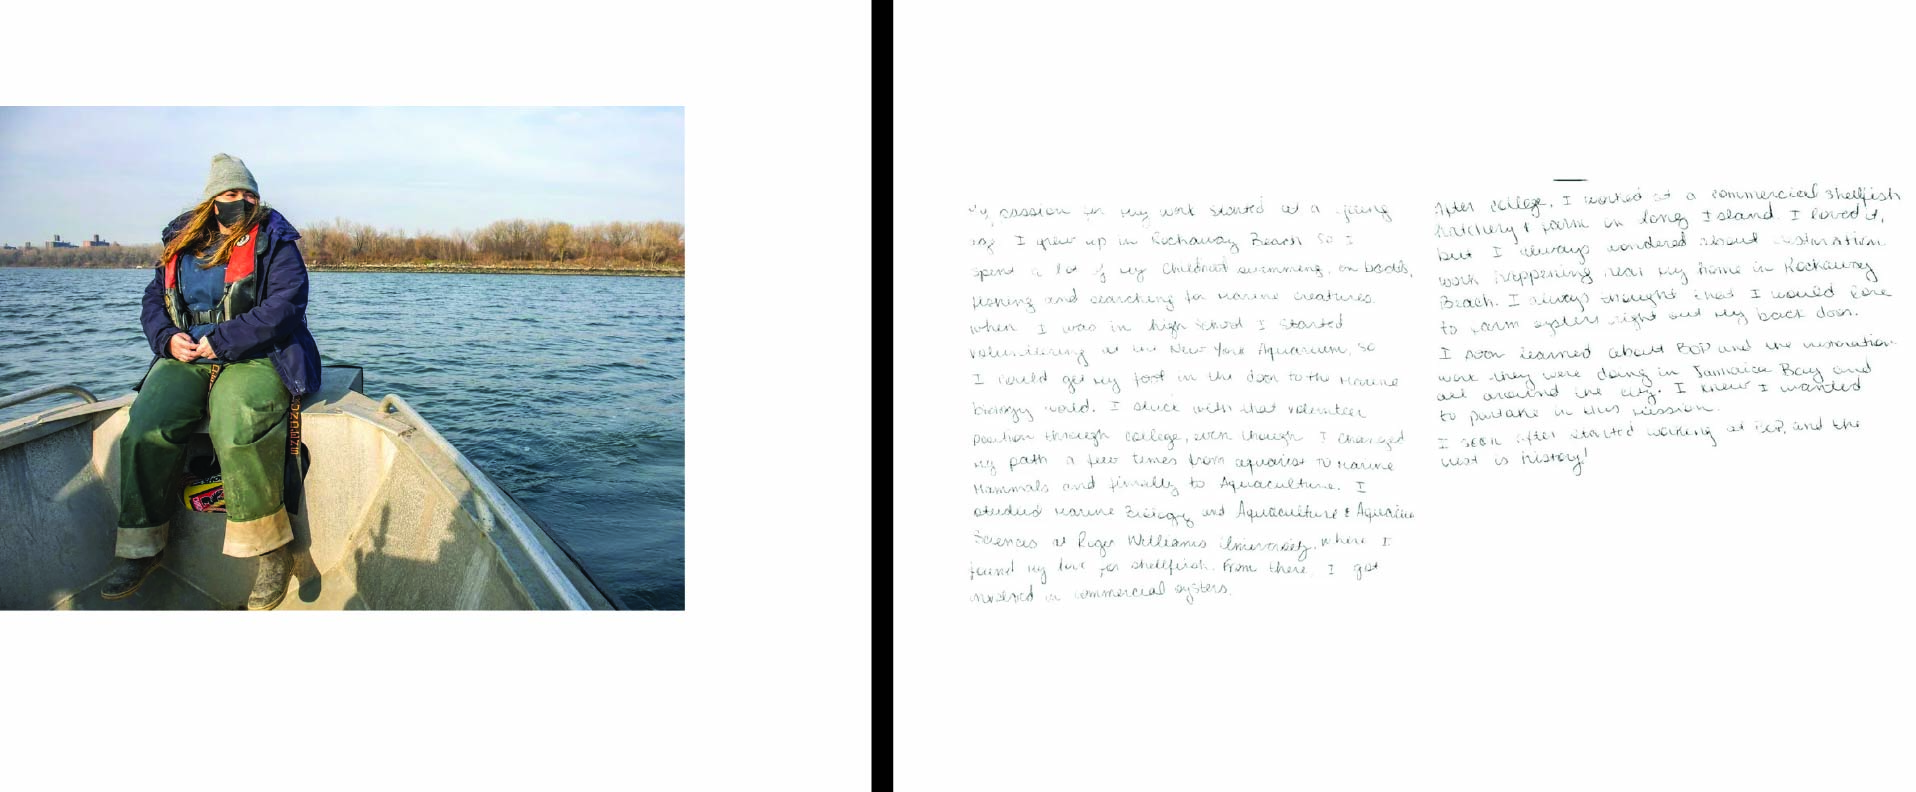 My passion for my work started at a young
age. I grew up in Rockaway Beach so I
spent a lot of my childhood swimming, on boats,
fishing and searching for marine creatures.
When I was in high school I started
volunteering at the New York Aquarium, so
I could get my foot in the door to the marine
biology world. I stuck with that volunteer
position through college, even though I changed
my path a few times from aquarist to marine
mammals and finally to Aquaculture. I
studied Marine Biology and Aquaculture & Aquatic
Sciences at Roger Williams University, where I
found my love for shellfish. From there, I got
involved in commercial oysters.
After college, I worked at a commercial shellfish
hatchery & farm on Long Island. I loved it,
but I always wondered about restoration
work happening near my home in Rockaway
Beach. I always thought that I would love
to farm oysters right out my back door.
I soon learned about BOP and the restoration
work they were doing in Jamaica Bay and
all around the city. I knew I wanted
to partake in this mission.
I soon after started working at BOP, and the
rest is history!